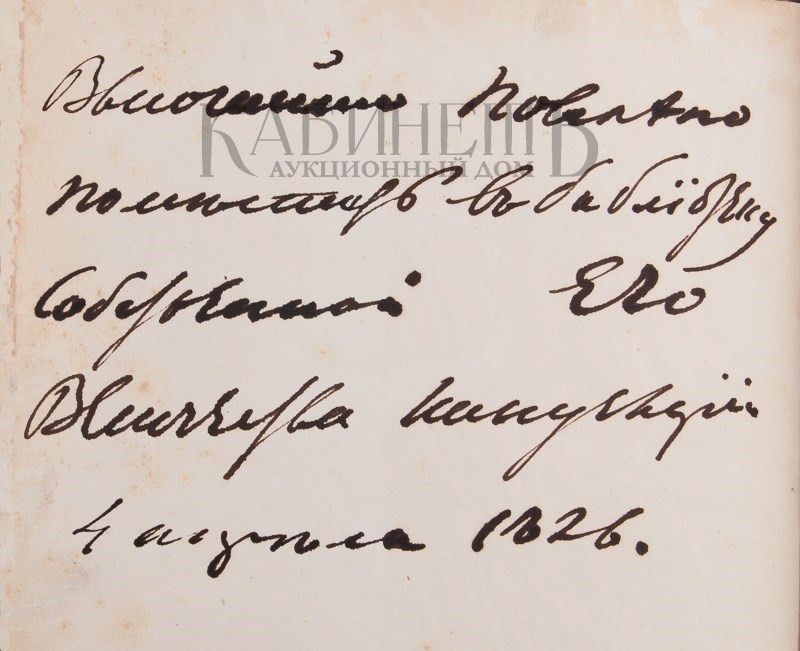 Высочайше повелено
КАБИНЕТЪ
АУКЦИОННЫЙ ДОМ
поместить въ библіотеку
Собственной Его
Величества канцеляріи
4 апреля 1826.